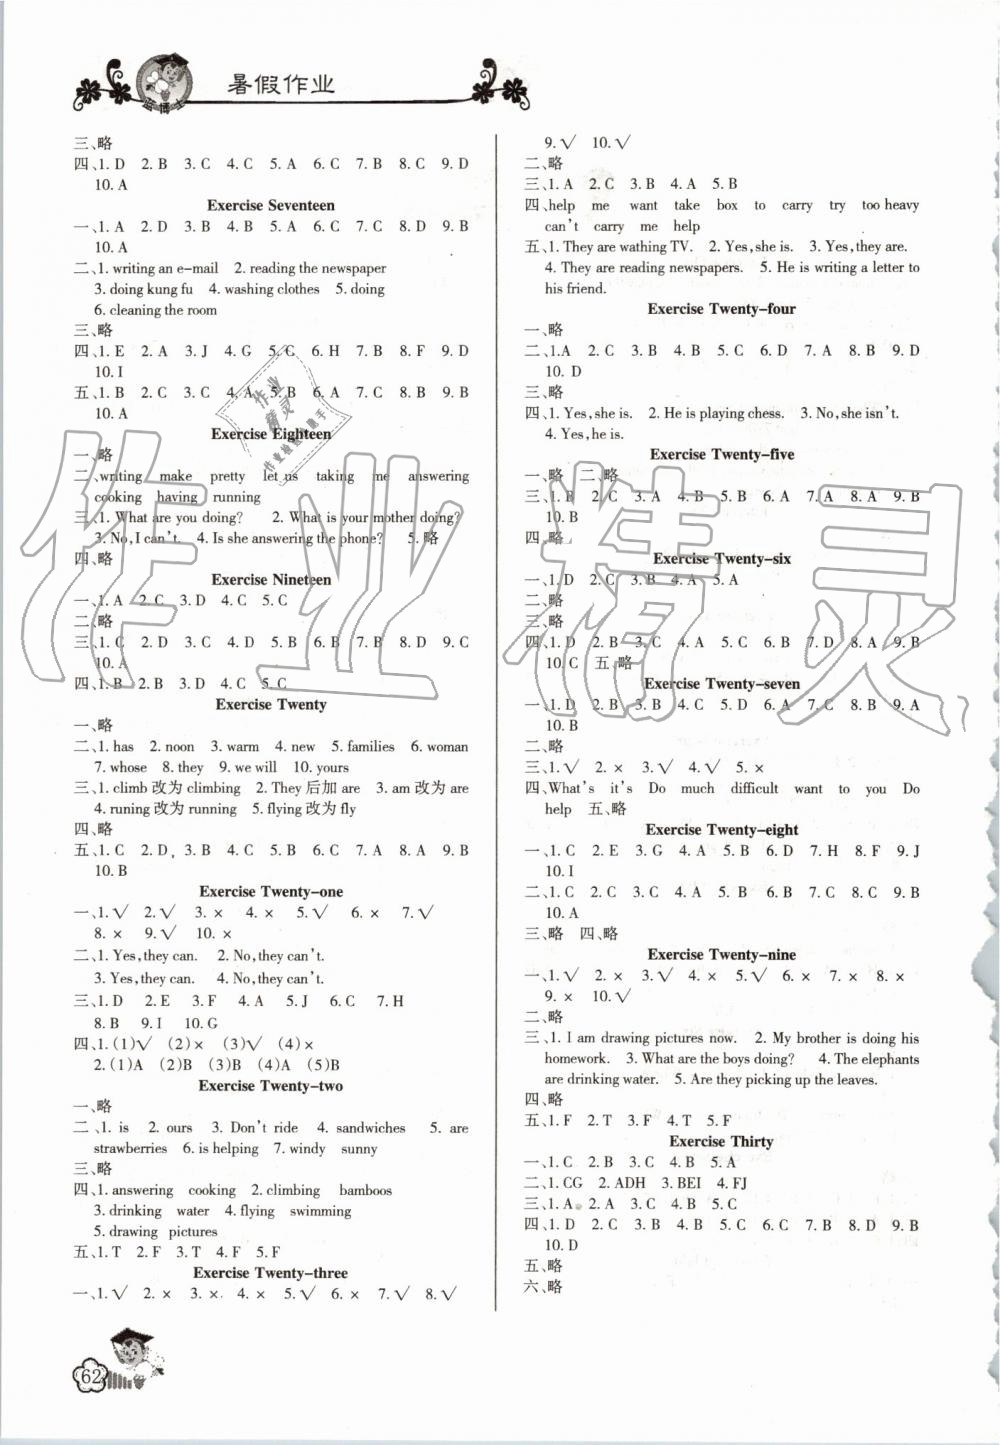 暑假作业
蓝博士
三、略
四、1. D 2. B 3. C 4. C 5. A 6. C 7. B 8. C 9. D
10. A
Exercise Seventeen
一、1. A 2. D 3. B 4. B 5. A 6. C 7. C 8. D 9. B
10. A
二、1. writing an e-mail 2. reading the newspaper
3. doing kung fu 4. washing clothes 5. doing
6. cleaning the room
三、略
四、1. E 2. A 3. J 4. G 5. C 6. H 7. B 8. F 9. D
10. I
五、1. B 2. C 3. C 4. A 5. B 6. A 7. C 8. C 9. B
10. A
Exercise Eighteen
一、略
二、writing make pretty let us taking me answering
cooking having running
三、1. What are you doing? 2. What is your mother doing?
3. No, I can't. 4. Is she answering the phone? 5. 略
四、略
Exercise Nineteen
一、1. A 2. C 3. D 4. C 5. C
二、略
三、1. C 2. D 3. C 4. D 5. B 6. B 7. B 8. D 9. C
10. A
四、1. B 2. B 3. D 4. C 5. C
Exercise Twenty
一、略
二、1. has 2. noon 3. warm 4. new 5. families 6. woman
7. whose 8. they 9. we will 10. yours
三、1. climb 改为 climbing 2. They 后加 are 3. am 改为 are
4. runing 改为 running 5. flying 改为 fly
四、略
五、1. C 2. D 3. B 4. C 5. B 6. C 7. A 8. A 9. B
10. B
Exercise Twenty-one
一、1. √ 2. √ 3. × 4. × 5. √ 6. × 7. √
8. × 9. √ 10. ×
二、1. Yes, they can. 2. No, they can't.
3. Yes, they can. 4. No, they can't.
三、1. D 2. E 3. F 4. A 5. J 6. C 7. H
8. B 9. I 10. G
四、1. (1)√ (2)× (3)√ (4)×
2. (1)A (2)B (3)B (4)A (5)B
Exercise Twenty-two
一、略
二、1. is 2. ours 3. Don't ride 4. sandwiches 5. are
strawberries 6. is helping 7. windy sunny
三、略
四、1. answering cooking 2. climbing bamboos
3. drinking water 4. flying swimming
5. drawing pictures
五、1. T 2. F 3. T 4. F 5. F
Exercise Twenty-three
一、1. √ 2. × 3. × 4. × 5. √ 6. × 7. √ 8. √
62
9. √ 10. √
二、略
三、1. A 2. C 3. B 4. A 5. B
四、help me want take box to carry try too heavy
can't carry me help
五、1. They are wathing TV. 2. Yes, she is. 3. Yes, they are.
4. They are reading newspapers. 5. He is writing a letter to
his friend.
Exercise Twenty-four
一、略
二、1. A 2. C 3. B 4. C 5. C 6. D 7. A 8. B 9. D
10. D
三、略
四、1. Yes, she is. 2. He is playing chess. 3. No, she isn't.
4. Yes, he is.
Exercise Twenty-five
一、略 二、略
三、1. B 2. C 3. A 4. B 5. B 6. A 7. A 8. A 9. B
10. B
四、略
Exercise Twenty-six
一、1. D 2. C 3. B 4. A 5. A
二、略
三、略
四、1. D 2. B 3. C 4. A 5. C 6. B 7. D 8. A 9. B
10. C 五、略
Exercise Twenty-seven
一、1. D 2. B 3. B 4. C 5. D 6. A 7. C 8. B 9. A
10. B
二、略
三、1. √ 2. × 3. √ 4. √ 5. ×
四、What's it's Do much difficult want to you Do
help 五、略
Exercise Twenty-eight
一、1. C 2. E 3. G 4. A 5. B 6. D 7. H 8. F 9. J
10. I
二、1. C 2. C 3. C 4. A 5. B 6. B 7. C 8. C 9. B
10. A
三、略 四、略
Exercise Twenty-nine
一、1. √ 2. × 3. √ 4. × 5. √ 6. × 7. × 8. ×
9. × 10. √
二、略
三、1. I am drawing pictures now. 2. My brother is doing his
homework. 3. What are the boys doing? 4. The elephants
are drinking water. 5. Are they picking up the leaves.
四、略
五、1. F 2. T 3. F 4. T 5. F
Exercise Thirty
一、1. C 2. B 3. C 4. B 5. A
二、1. CG 2. ADH 3. BEI 4. FJ
三、1. A 2. A 3. C 4. B 5. C
四、1. D 2. C 3. B 4. B 5. C 6. C 7. B 8. D 9. B
10. D
五、略
六、略
作业精灵